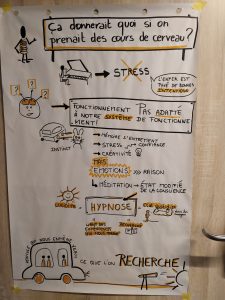 Ça donnerait quoi si on
prenait des cours de cerveau?
STRESS
L'ENFER EST
PAVÉ DE BONNES
INTENTIONS
FONCTIONNEMENT PAS ADAPTÉ
À NOTRE SYSTÈME DE FONCTIONNE
MENT!
INSTINCT
MÉMOIRE S'ENTRETIENT
STRESS CONFIANCE
CRÉATIVITÉ
MAIS
EMOTIONS >>> RAISON
MÉDITATION → ÉTAT MODIFIÉ
DE LA CONSCIENCE
HYPNOSE
ce que l'on RECHERCHE!